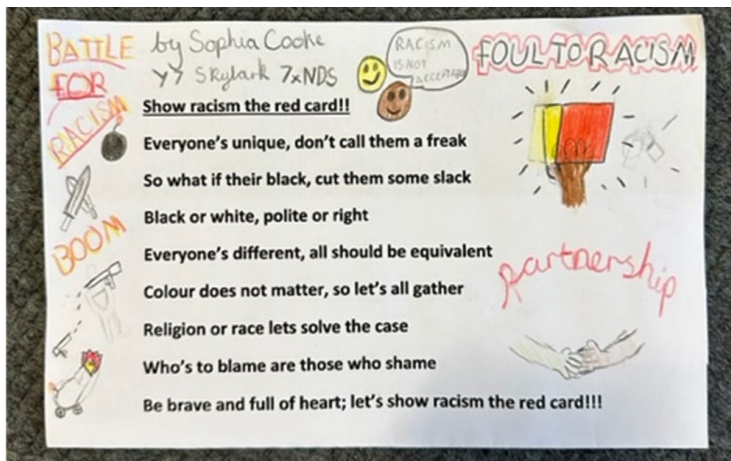 BATTLE
FOR
RACISM
BOOM
by Sophia Cooke
Y7 Skylark 7xNDS
RACISM
IS NOT
ACCEPTABLE
FOUL TO RACISM
Show racism the red card!!
Everyone's unique, don't call them a freak
So what if their black, cut them some slack
Black or white, polite or right
Everyone's different, all should be equivalent
Colour does not matter, so let's all gather
Religion or race lets solve the case
Who's to blame are those who shame
Be brave and full of heart; let's show racism the red card!!!
partnership